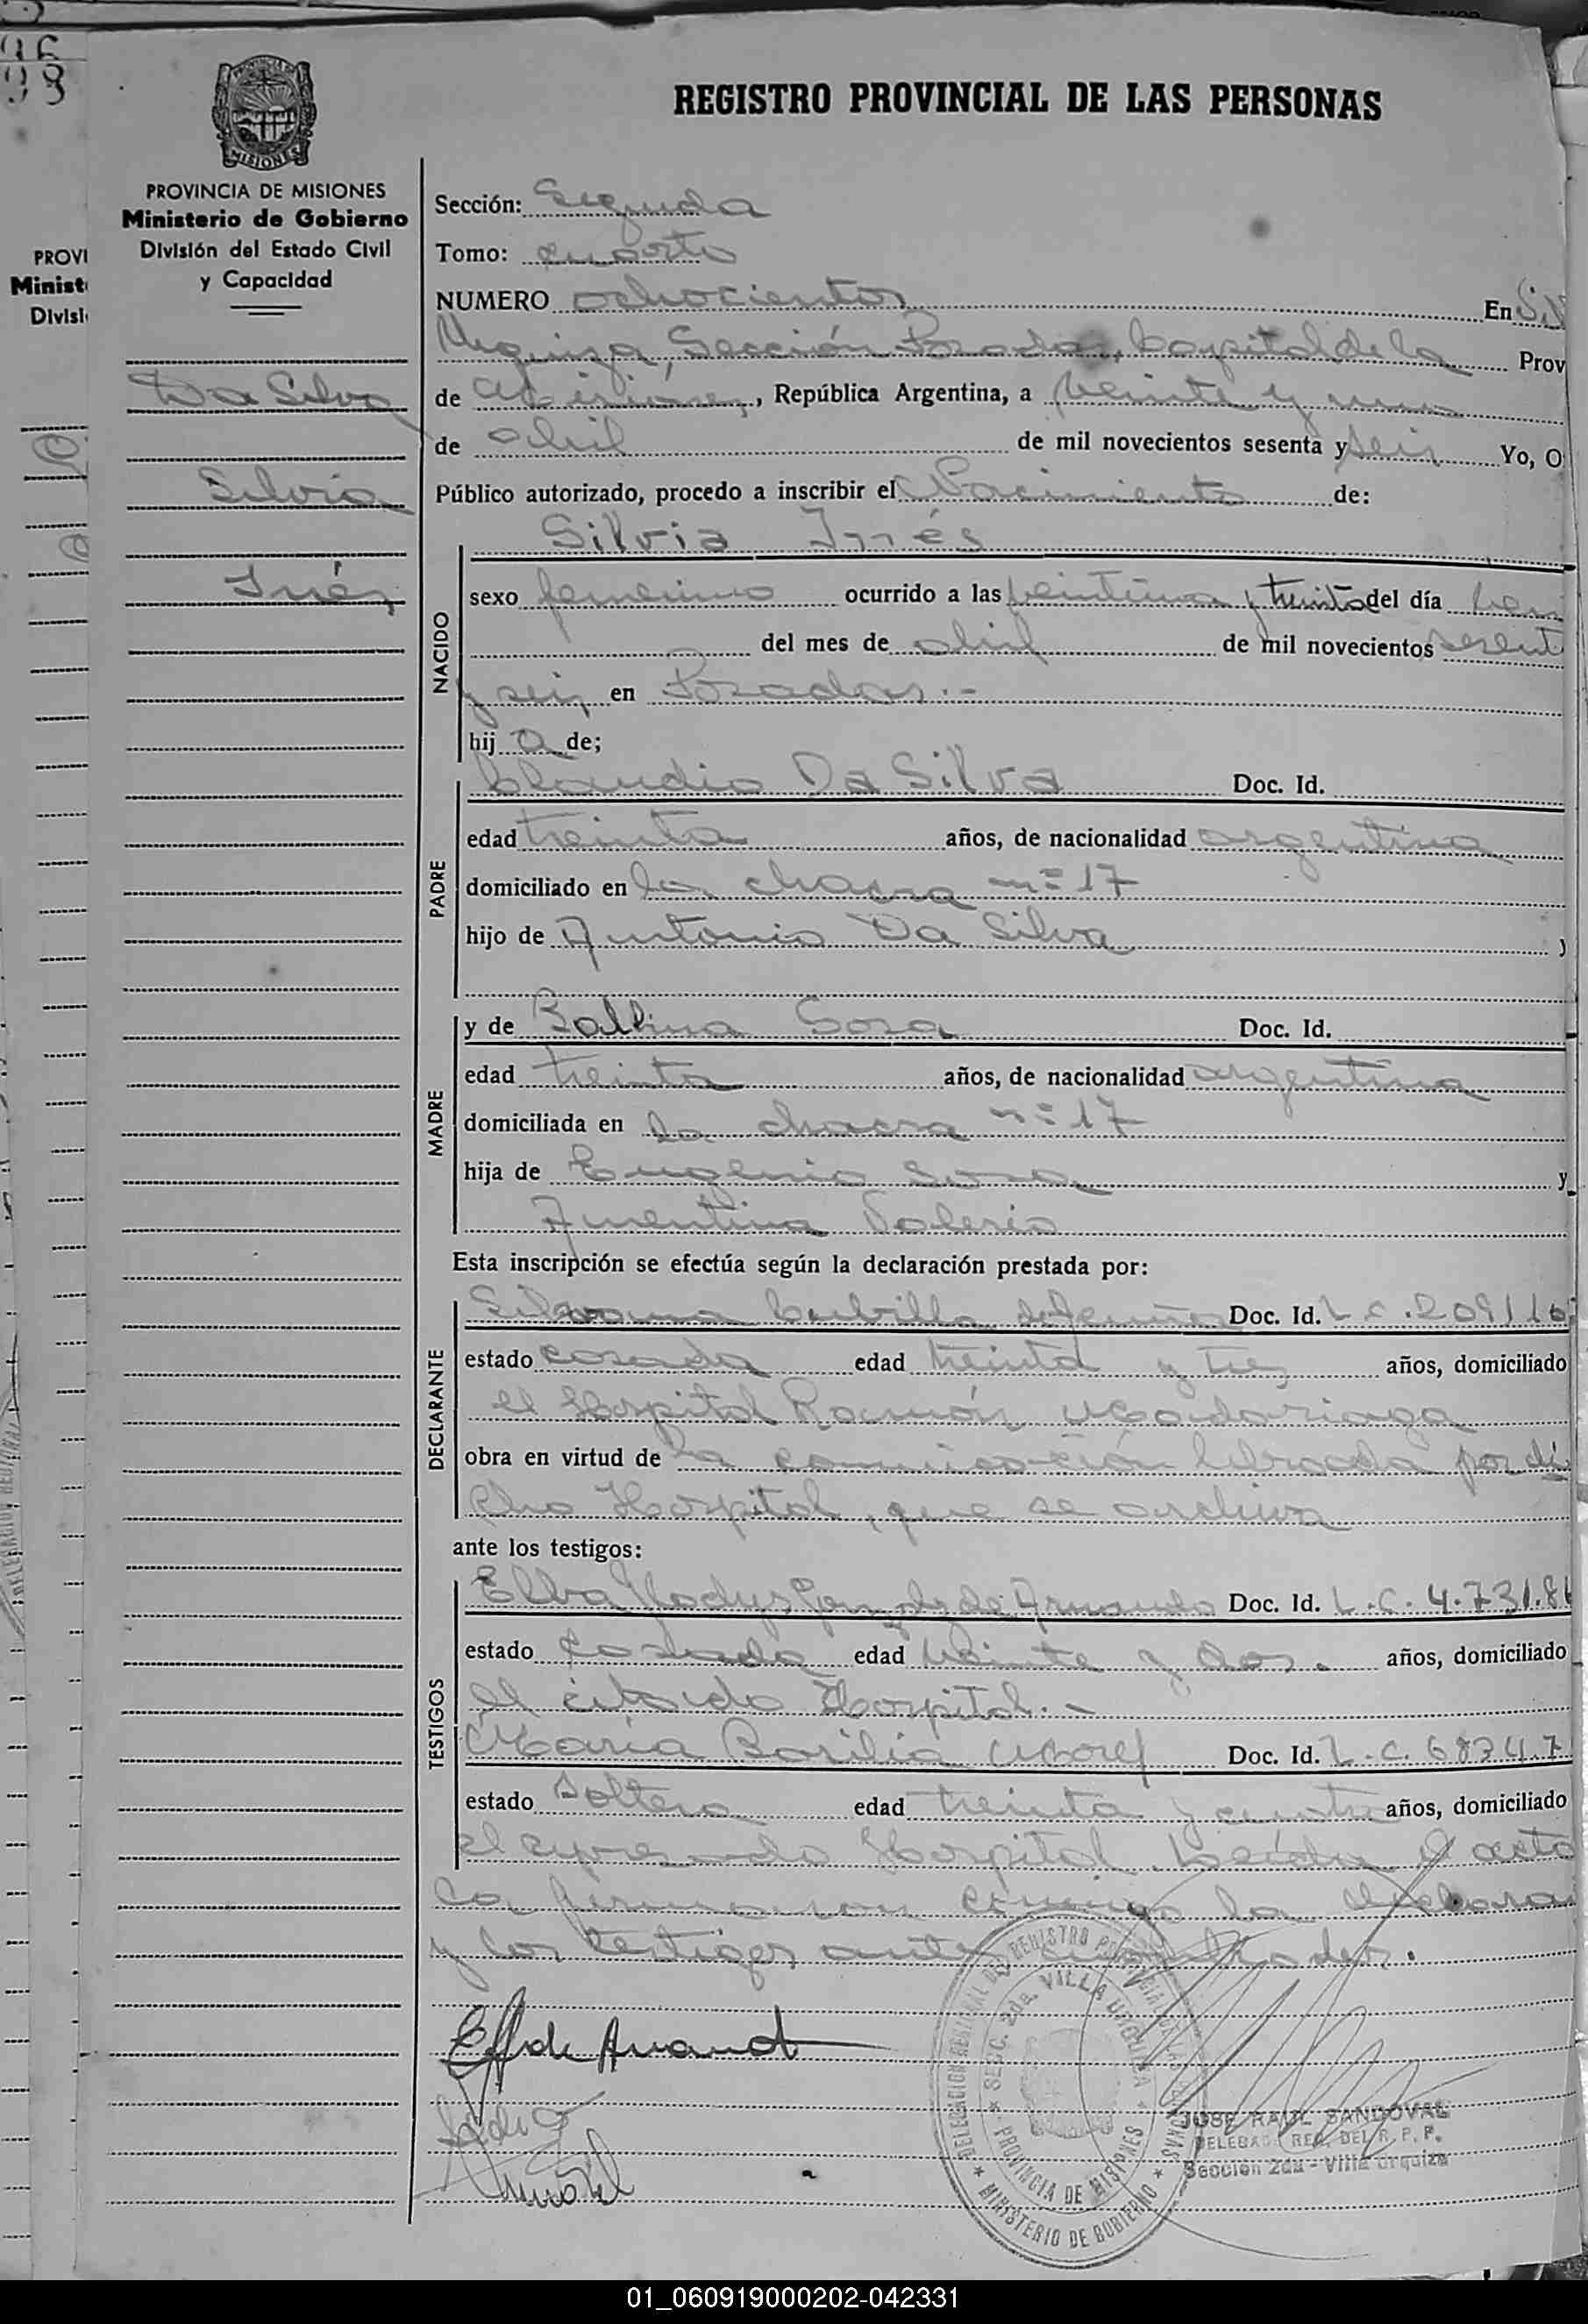 REGISTRO PROVINCIAL DE LAS PERSONAS
MISIONES
PROVINCIA DE MISIONES
Ministerio de Gobierno
División del Estado Civil
y Capacidad
Da Silva
Silvia
Inés
Sección: Segunda
Tomo: cuarto
NUMERO ochocientos En
Urquiza, Sección Posadas, Capital de la Prov
de Misiones, República Argentina, a veinte y uno
de abril de mil novecientos sesenta y seis Yo, O
Público autorizado, procedo a inscribir el Nacimiento de:
Silvia Inés
NACIDO
sexo femenino ocurrido a las veintiuna y treinta del día
del mes de abril de mil novecientos sesent
y seis en Posadas.-
hij a de;
PADRE
Claudio Da Silva Doc. Id.
edad treinta años, de nacionalidad argentina
domiciliado en la chacra nº 17
hijo de Antonio Da Silva y
MADRE
y de Balbina Sosa Doc. Id.
edad treinta años, de nacionalidad argentina
domiciliada en la chacra nº 17
hija de Eugenio Sosa y
Valeria
Esta inscripción se efectúa según la declaración prestada por:
DECLARANTE
Doc. Id. L.C. 209116
estado casada edad treinta y tres años, domiciliado
el Hospital Ramón Madariaga
obra en virtud de la comunicación librada por di
cho Hospital, que se archiva
ante los testigos:
TESTIGOS
Elba Gladys de Doc. Id. L.C. 4.731.8
estado casada edad veinte y dos. años, domiciliado
el citado Hospital.-
María Basilia Doc. Id. L.C. 68747
estado soltera edad treinta y cuatro años, domiciliado
el expresado Hospital. Leída el acta
la firmaron conmigo la
y los testigos antes
DELEGACION REGIONAL DEL REGISTRO PROVINCIAL DE LAS PERSONAS
MINISTERIO DE GOBIERNO
SECC. 2da. VILLA URQUIZA
PROVINCIA DE MISIONES
JOSE RAUL SANDOVAL
DELEGADO REG. DEL R. P. P.
Sección 2da - Villa Urquiza
01_060919000202-042331